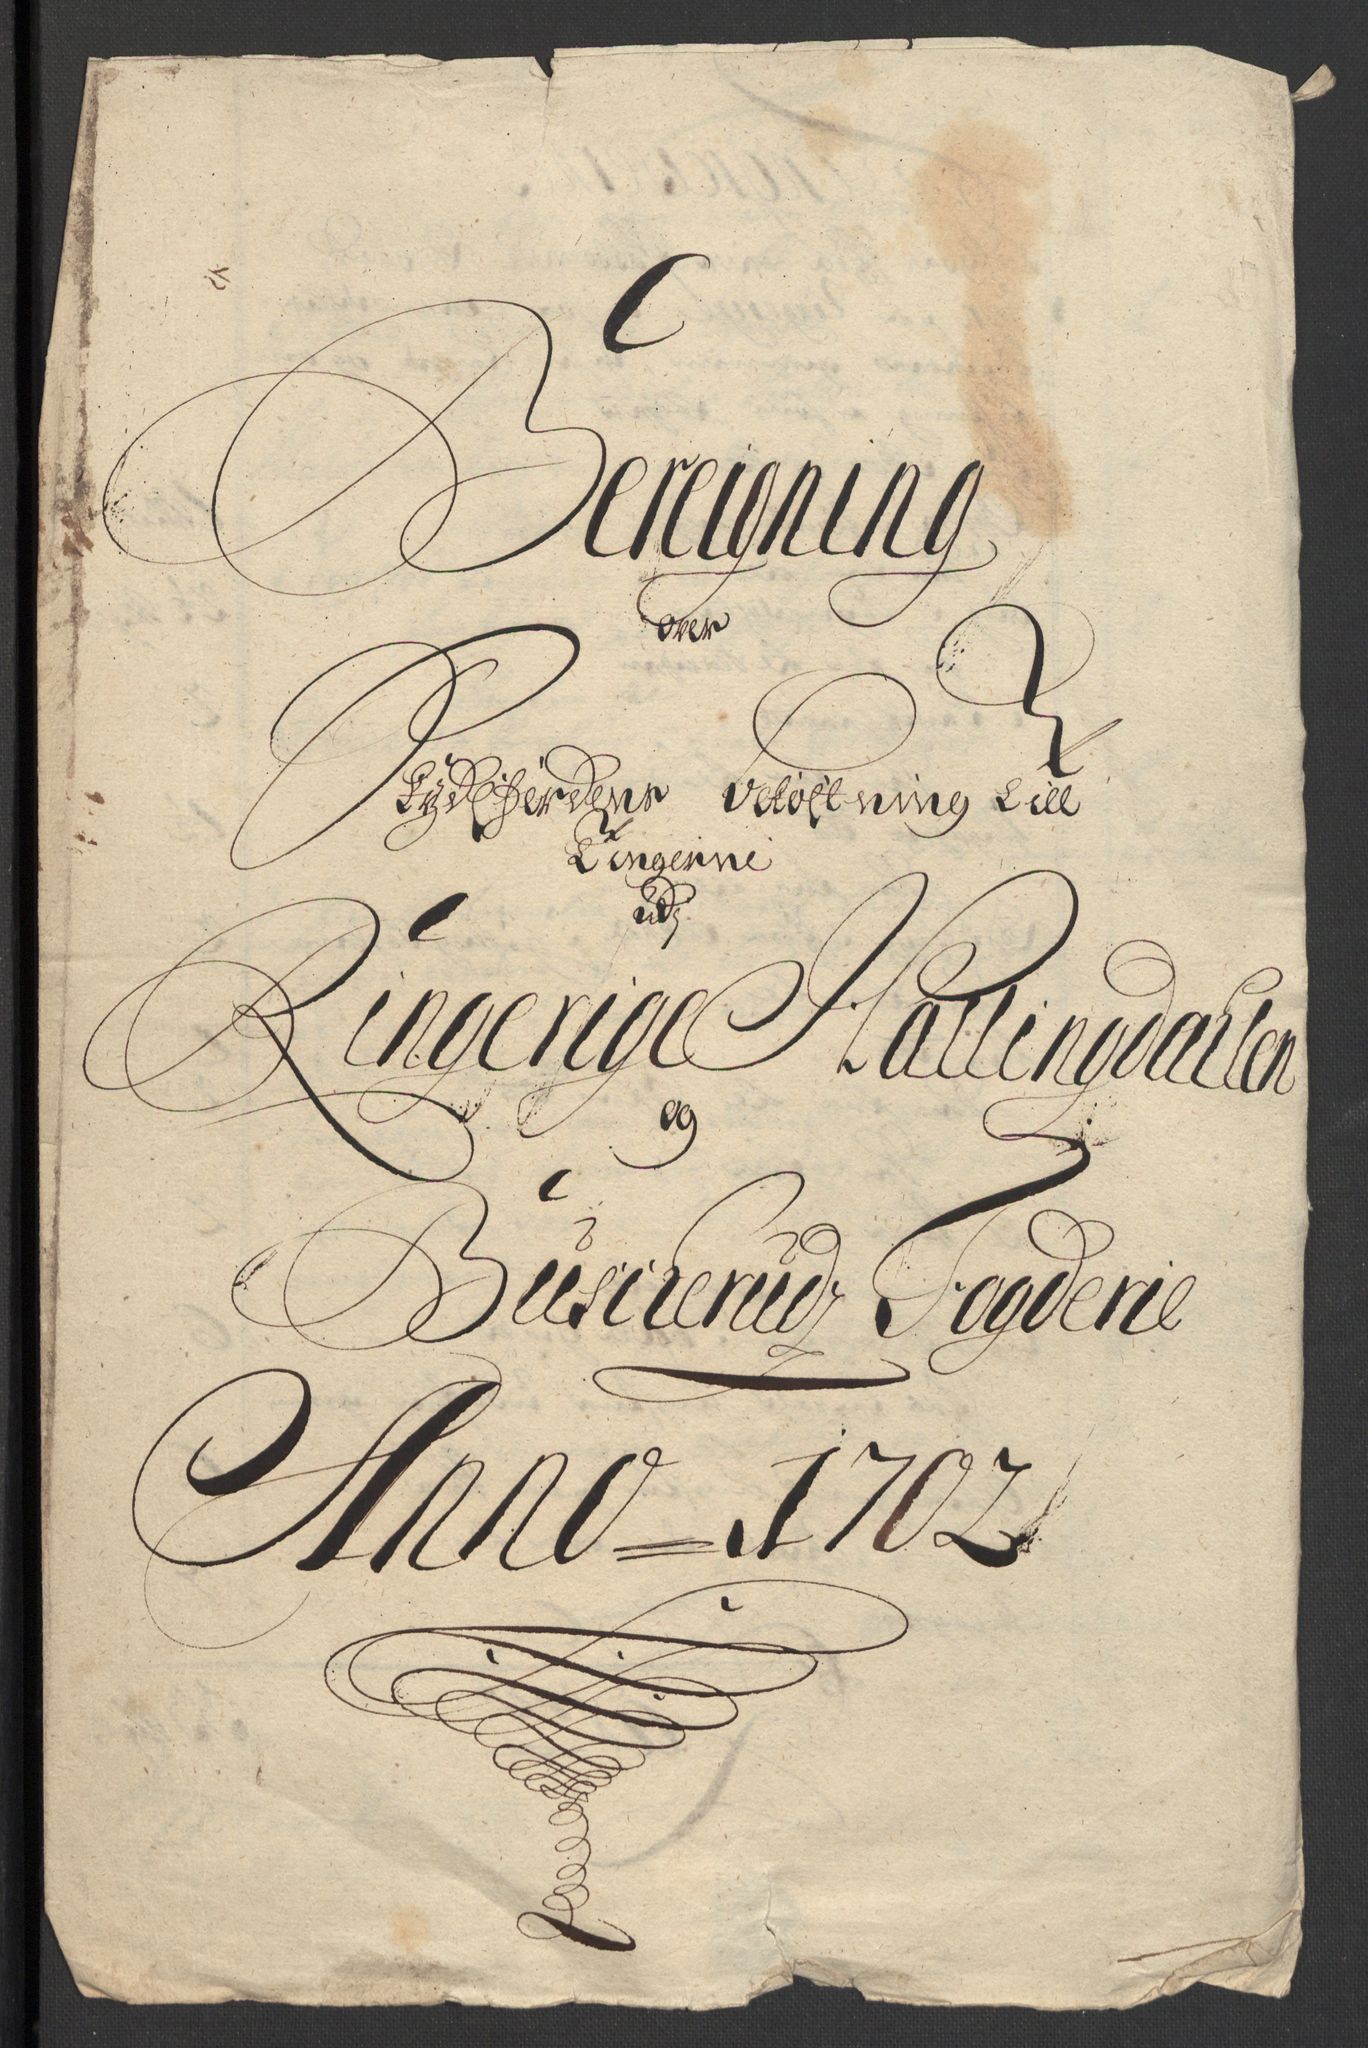 Bereigning
over
Skydsferdens bekostning till
Tingerne
udj
Ringerige Hallingdahlen
og
Buscheruds Fogderie
Anno = 1702